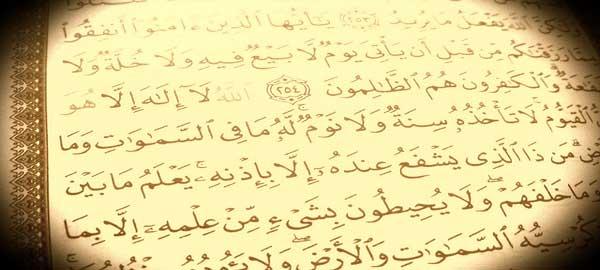 ٱللَّهَ يَفْعَلُ مَا يُرِيدُ ٢٥٣ يَٰٓأَيُّهَا ٱلَّذِينَ ءَامَنُوٓا۟ أَنفِقُوا۟
مِمَّا رَزَقْنَٰكُم مِّن قَبْلِ أَن يَأْتِىَ يَوْمٌ لَّا بَيْعٌ فِيهِ وَلَا خُلَّةٌ وَلَا
شَفَٰعَةٌ وَٱلْكَٰفِرُونَ هُمُ ٱلظَّٰلِمُونَ ٢٥٤ ٱللَّهُ لَآ إِلَٰهَ إِلَّا هُوَ
ٱلْقَيُّومُ لَا تَأْخُذُهُۥ سِنَةٌ وَلَا نَوْمٌ لَّهُۥ مَا فِى ٱلسَّمَٰوَٰتِ وَمَا
مَن ذَا ٱلَّذِى يَشْفَعُ عِندَهُۥٓ إِلَّا بِإِذْنِهِۦ يَعْلَمُ مَا بَيْنَ
وَمَا خَلْفَهُمْ وَلَا يُحِيطُونَ بِشَىْءٍ مِّنْ عِلْمِهِۦٓ إِلَّا بِمَا
كُرْسِيُّهُ ٱلسَّمَٰوَٰتِ وَٱلْأَرْضَ وَلَا